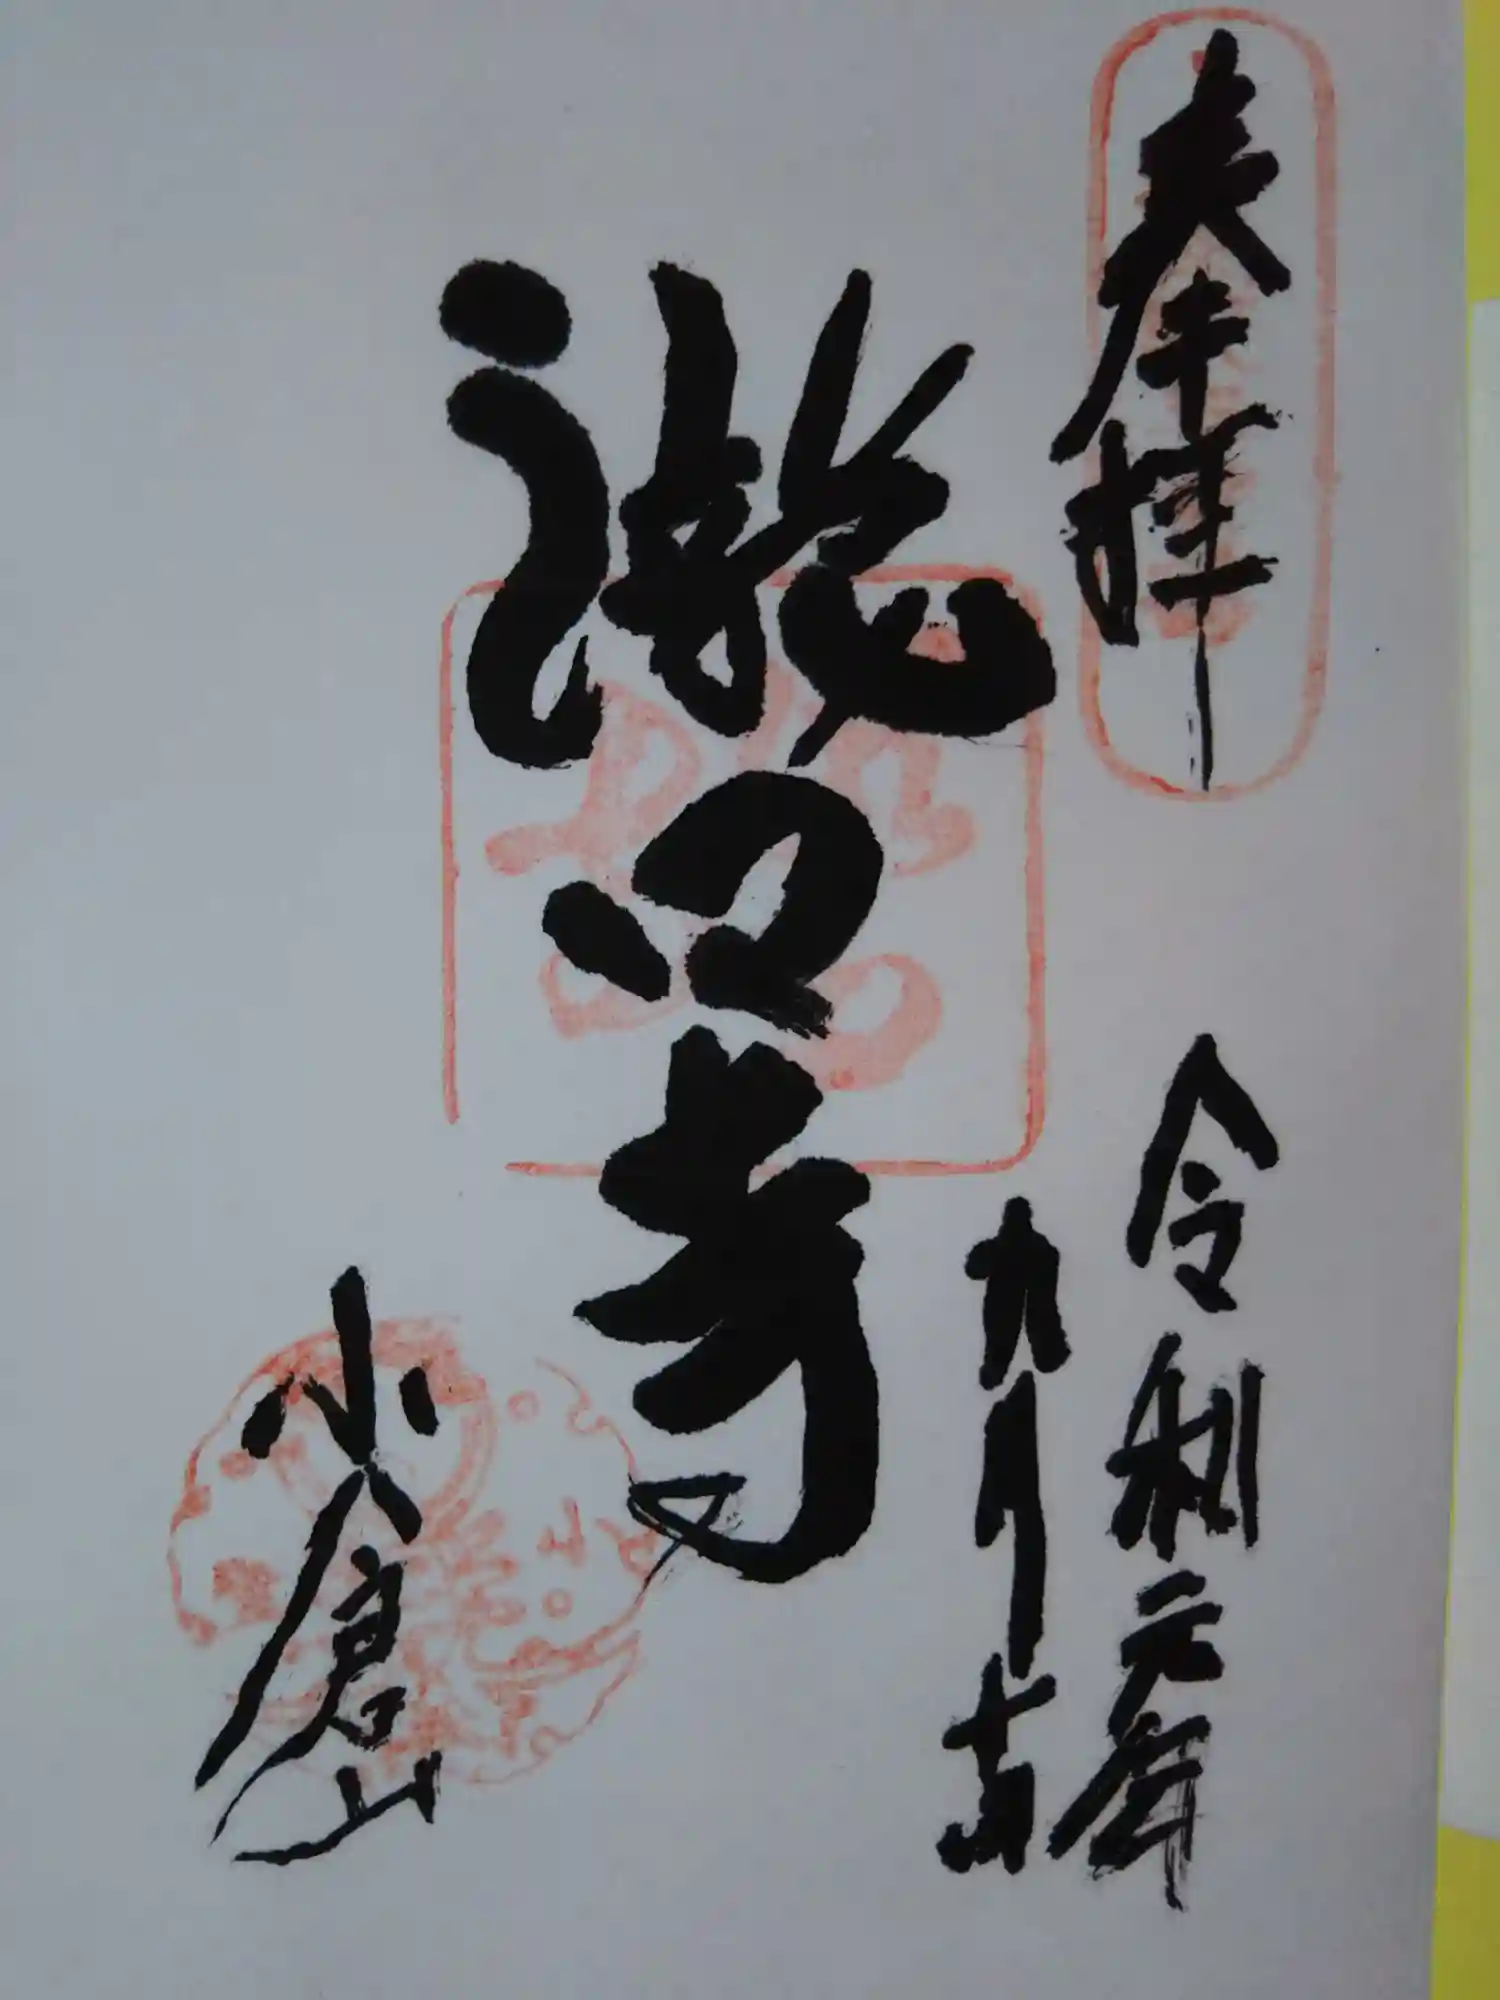 奉拝
令和元年
九月
滝口寺
小倉山